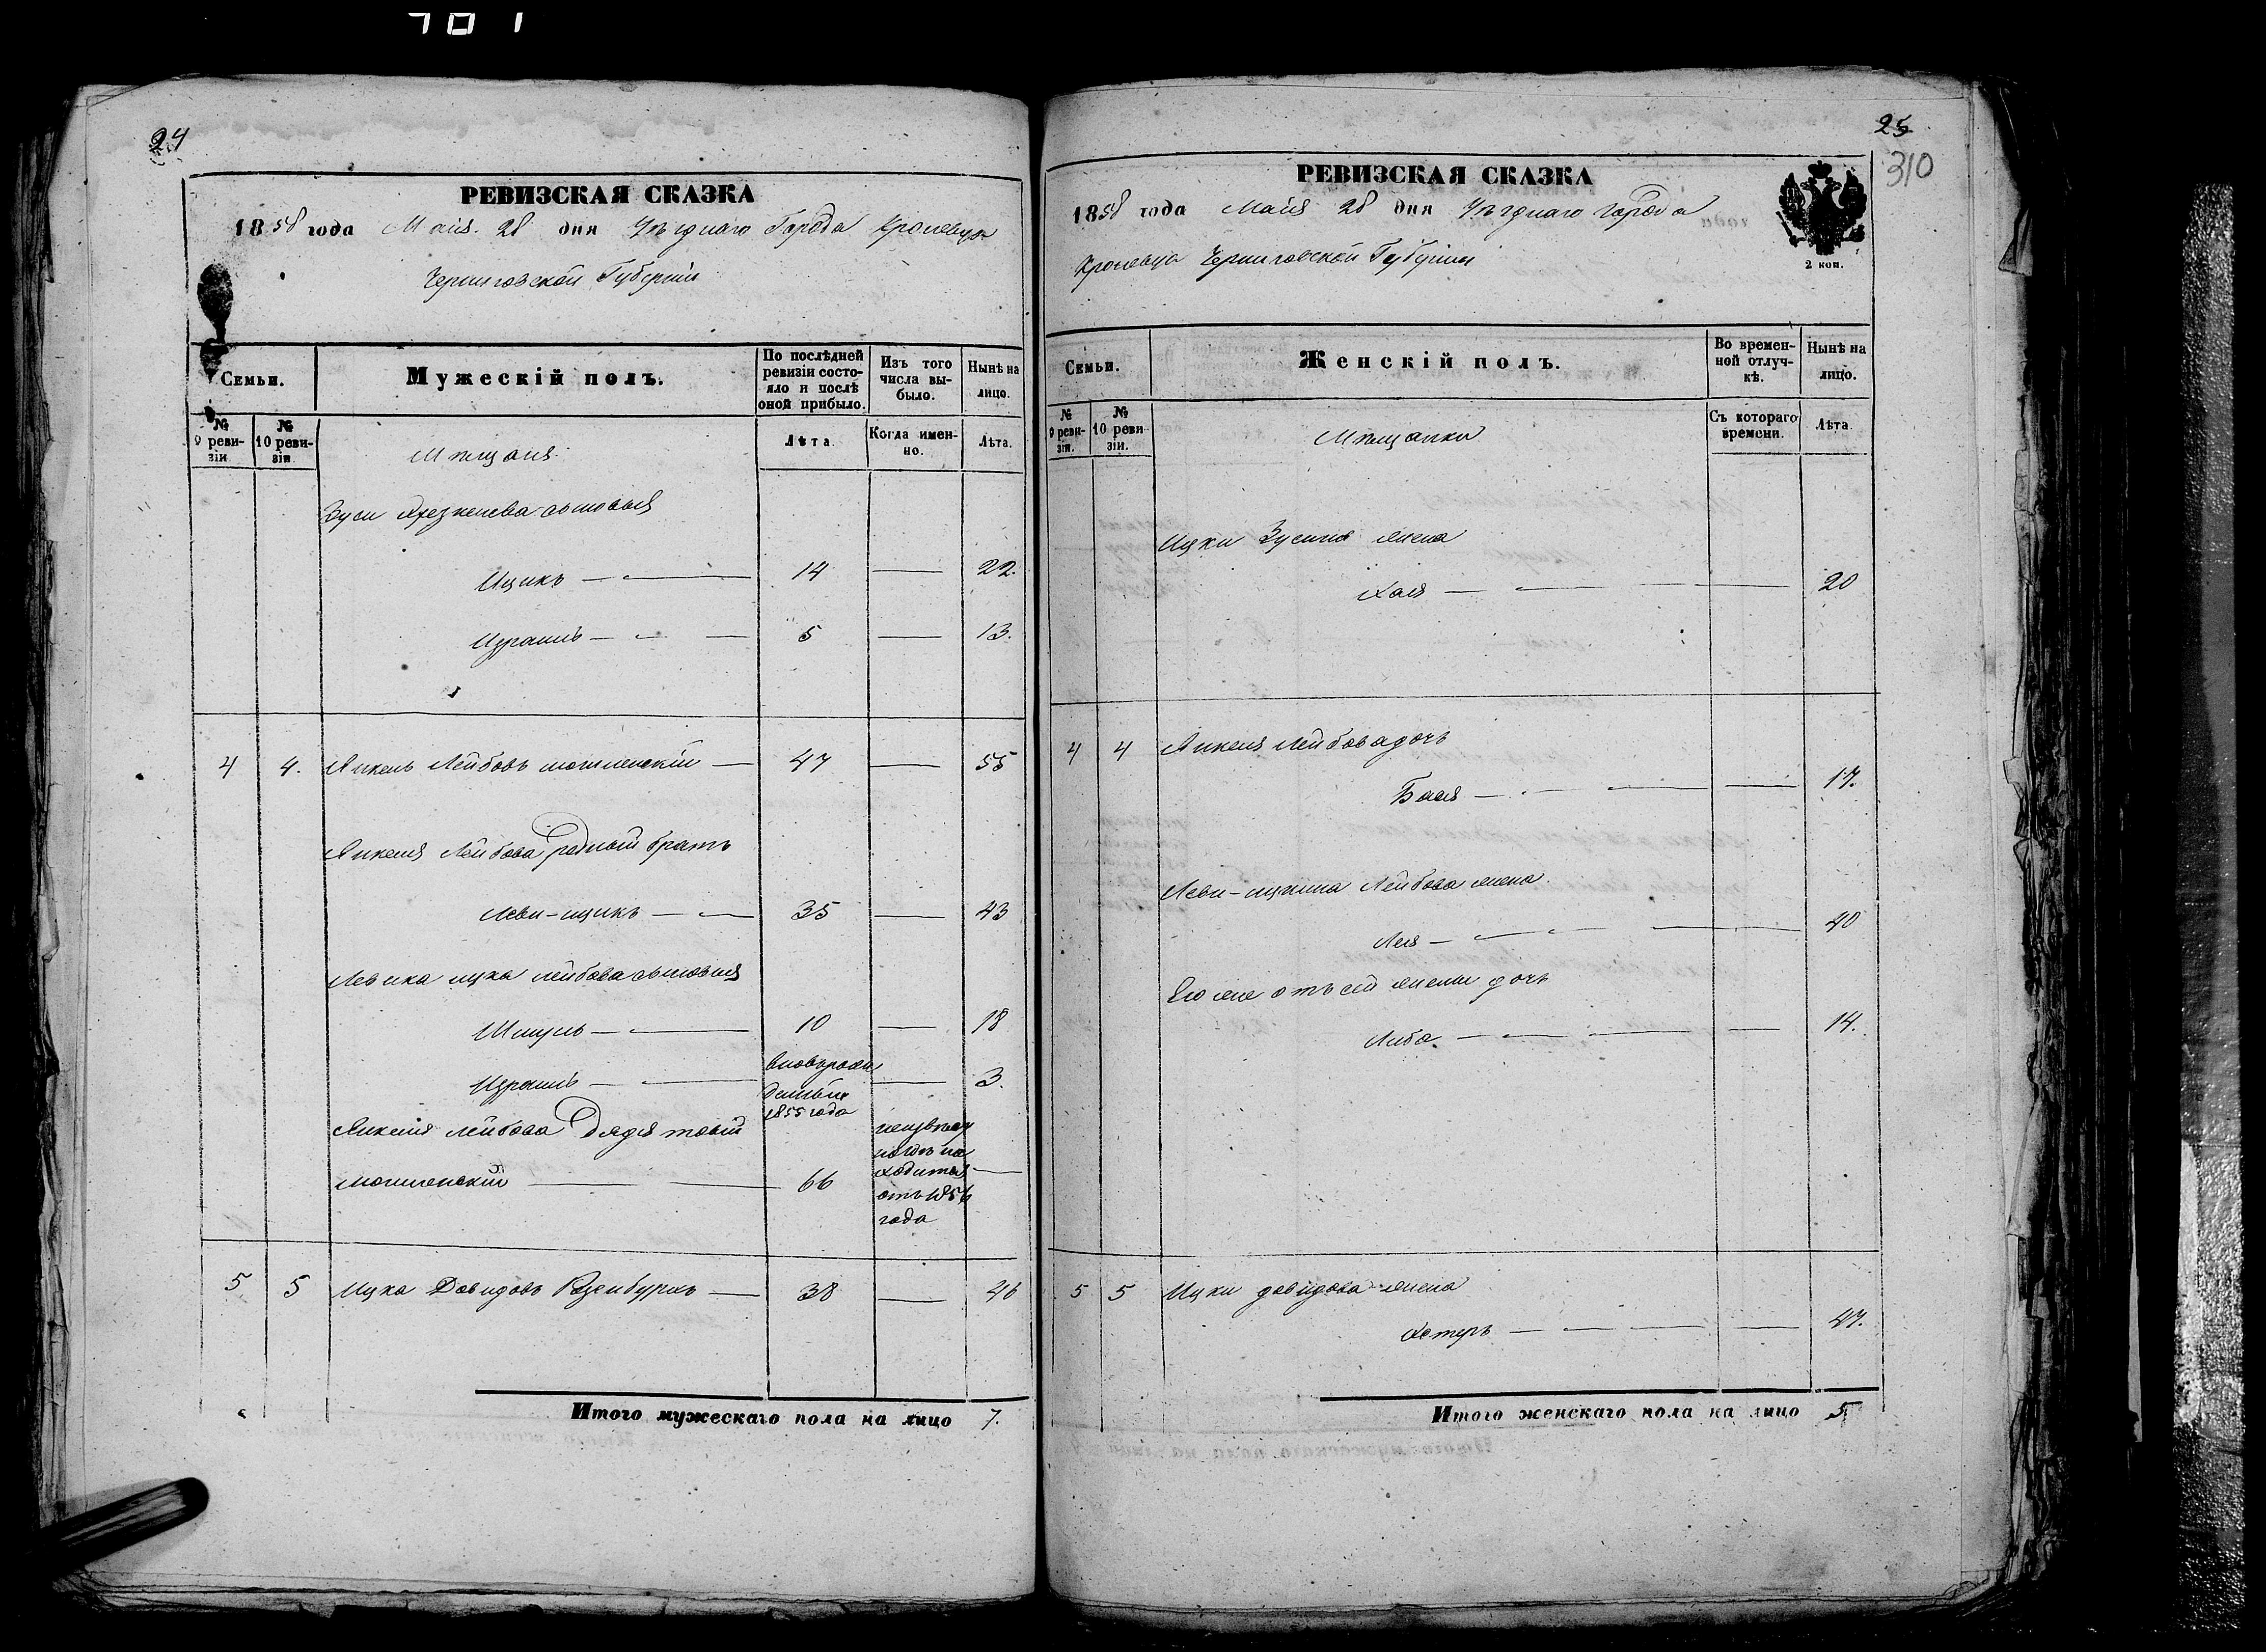 701
24
РЕВИЗСКАЯ СКАЗКА
1858 года Маія 28 дня Уѣзднаго Города Кролевца
Черниговской Губерніи
Семьи.
Мужескій полъ.
По послѣдней ревизіи состояло и послѣ оной прибыло.
Изъ того числа выбыло.
Нынѣ на лицо.
№ 9 ревизіи
№ 10 ревизіи.
Лѣта.
Когда именно.
Лѣта.
Мѣщаня.
Зуси сыновья
Ицикъ — 14 — 22.
Израиль — 5 — 13.
4 4. Янкель Лейбовъ — 47 — 55
Янкеля Лейбова родный братъ
Леви-ицикъ — 35 — 43
Левика ицка Лейбова сыновья
Шмуль — 10 — 18
Израиль — 3.
1855 года
Янкеля Лейбова Дядя
66
отъ 1856
года
5 5 Ицка Давидовъ Розенбургъ — 38 — 46
Итого мужескаго пола на лицо 7.
25
310
РЕВИЗСКАЯ СКАЗКА
1858 года Маія 28 дня Уѣзднаго Города
Кролевца Черниговской Губерніи
2 коп.
Семьи.
Женскій полъ.
Во временной отлучкѣ.
Нынѣ на лицо.
№ 9 ревизіи.
№ 10 ревизіи.
Съ котораго времени.
Лѣта.
Мѣщанки
Ицки Зусина жена
Хая — 20
4 4 Янкеля Лейбова дочь
Бася — 17.
Леви-ицкина Лейбова жена
Лея — 40
Его же отъ сей жены дочь
Либа — 14.
5 5 Ицки Давидова жена
Естеръ — 47.
Итого женскаго пола на лицо 5